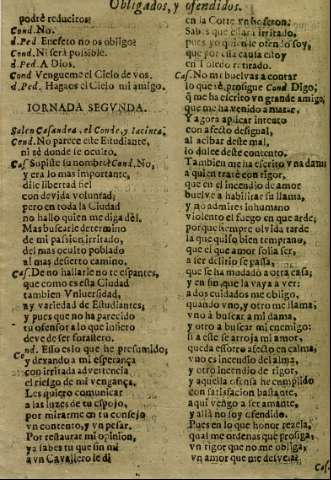 Obligados, y ofendidos.
podrè reduciros?
Cond. No.
d.Ped. Enefeto no os obligo?
Cond. Ni serà posible.
d.Ped. A Dios.
Cond Vengueme el Cielo de vos.
d.Ped. Hagaos el Cielo mi amigo.
IORNADA SEGVNDA.
Salen Casandra, el Conde, y Iacinta.
Cond. No parece este Estudiante,
ni sè donde se oculto.
Cas Supiste su nombre? Cond. No,
y era lo mas importante,
dile libertad fiel
con devida voluntad,
pero en toda la Ciudad
no hallo quien me diga dèl.
Mas buscarle determino
de mi passion irritado,
del mas oculto poblado
al mas desierto camino.
Cas. De no hallarle no te espantes,
que como es esta Ciudad
tambien Vniuersidad,
ay variedad de Estudiantes;
y pues que no ha parecido
tu ofensor a lo que infiero
deve de ser forastero.
Cond. Esso es lo que he presumido;
y dexando a mi esperança
con irritada advertencia
el riesgo de mi vengança,
Les quiero comunicar
a las luzes de tu espejo,
por mirarme en tu consejo
vn contento, y vn pesar.
Por restaurar mi opinion,
ya sabes tu que sin mi
a vn Cavallero le di
en la Corte vn bofeton.
Sabes que estarà irritado,
pues yo quien le ofendo soy,
que por essa causa estoy
en Toledo retirado.
Cas. No me buelvas a contar
lo que se prosigue Cond. Digo;
q̃ me ha escrito vn grande amigo,
que me ha venido a matar.
Y agora aplicar intento
con afecto desigual,
al acibar deste mal,
lo dulce deste contento.
Tambien me ha escrito vna dama
a quien tratè con rigor,
que en el incendio de amor
buelve a habilitar su llama,
y no admires inhumano
violento el fuego en que arde;
porque siempre olvida tarde
la que quiso bien temprano,
que el que amor solia ser,
a ser delirio se passa;
que se ha mudado a otra casa;
y en fin, que la vaya a ver:
a dos cuidados me obligo,
quando vno, y otro me llama;
vno a buscar a mi dama,
y otro a buscar mi enemigo:
si a este se arroja mi amor,
queda essotro afecto en calma,
vno es incendio del alma,
y otro incendio de rigor,
y aquella ofensa he cumplido
con satisfacion bastante,
aqui vengo a ser amante,
y allà no soy ofendido.
Pues en lo que honor rezela,
qual me ordenas que prosiga,
vn rigor que no me obliga,
vn amor que me desvela?
Cas.